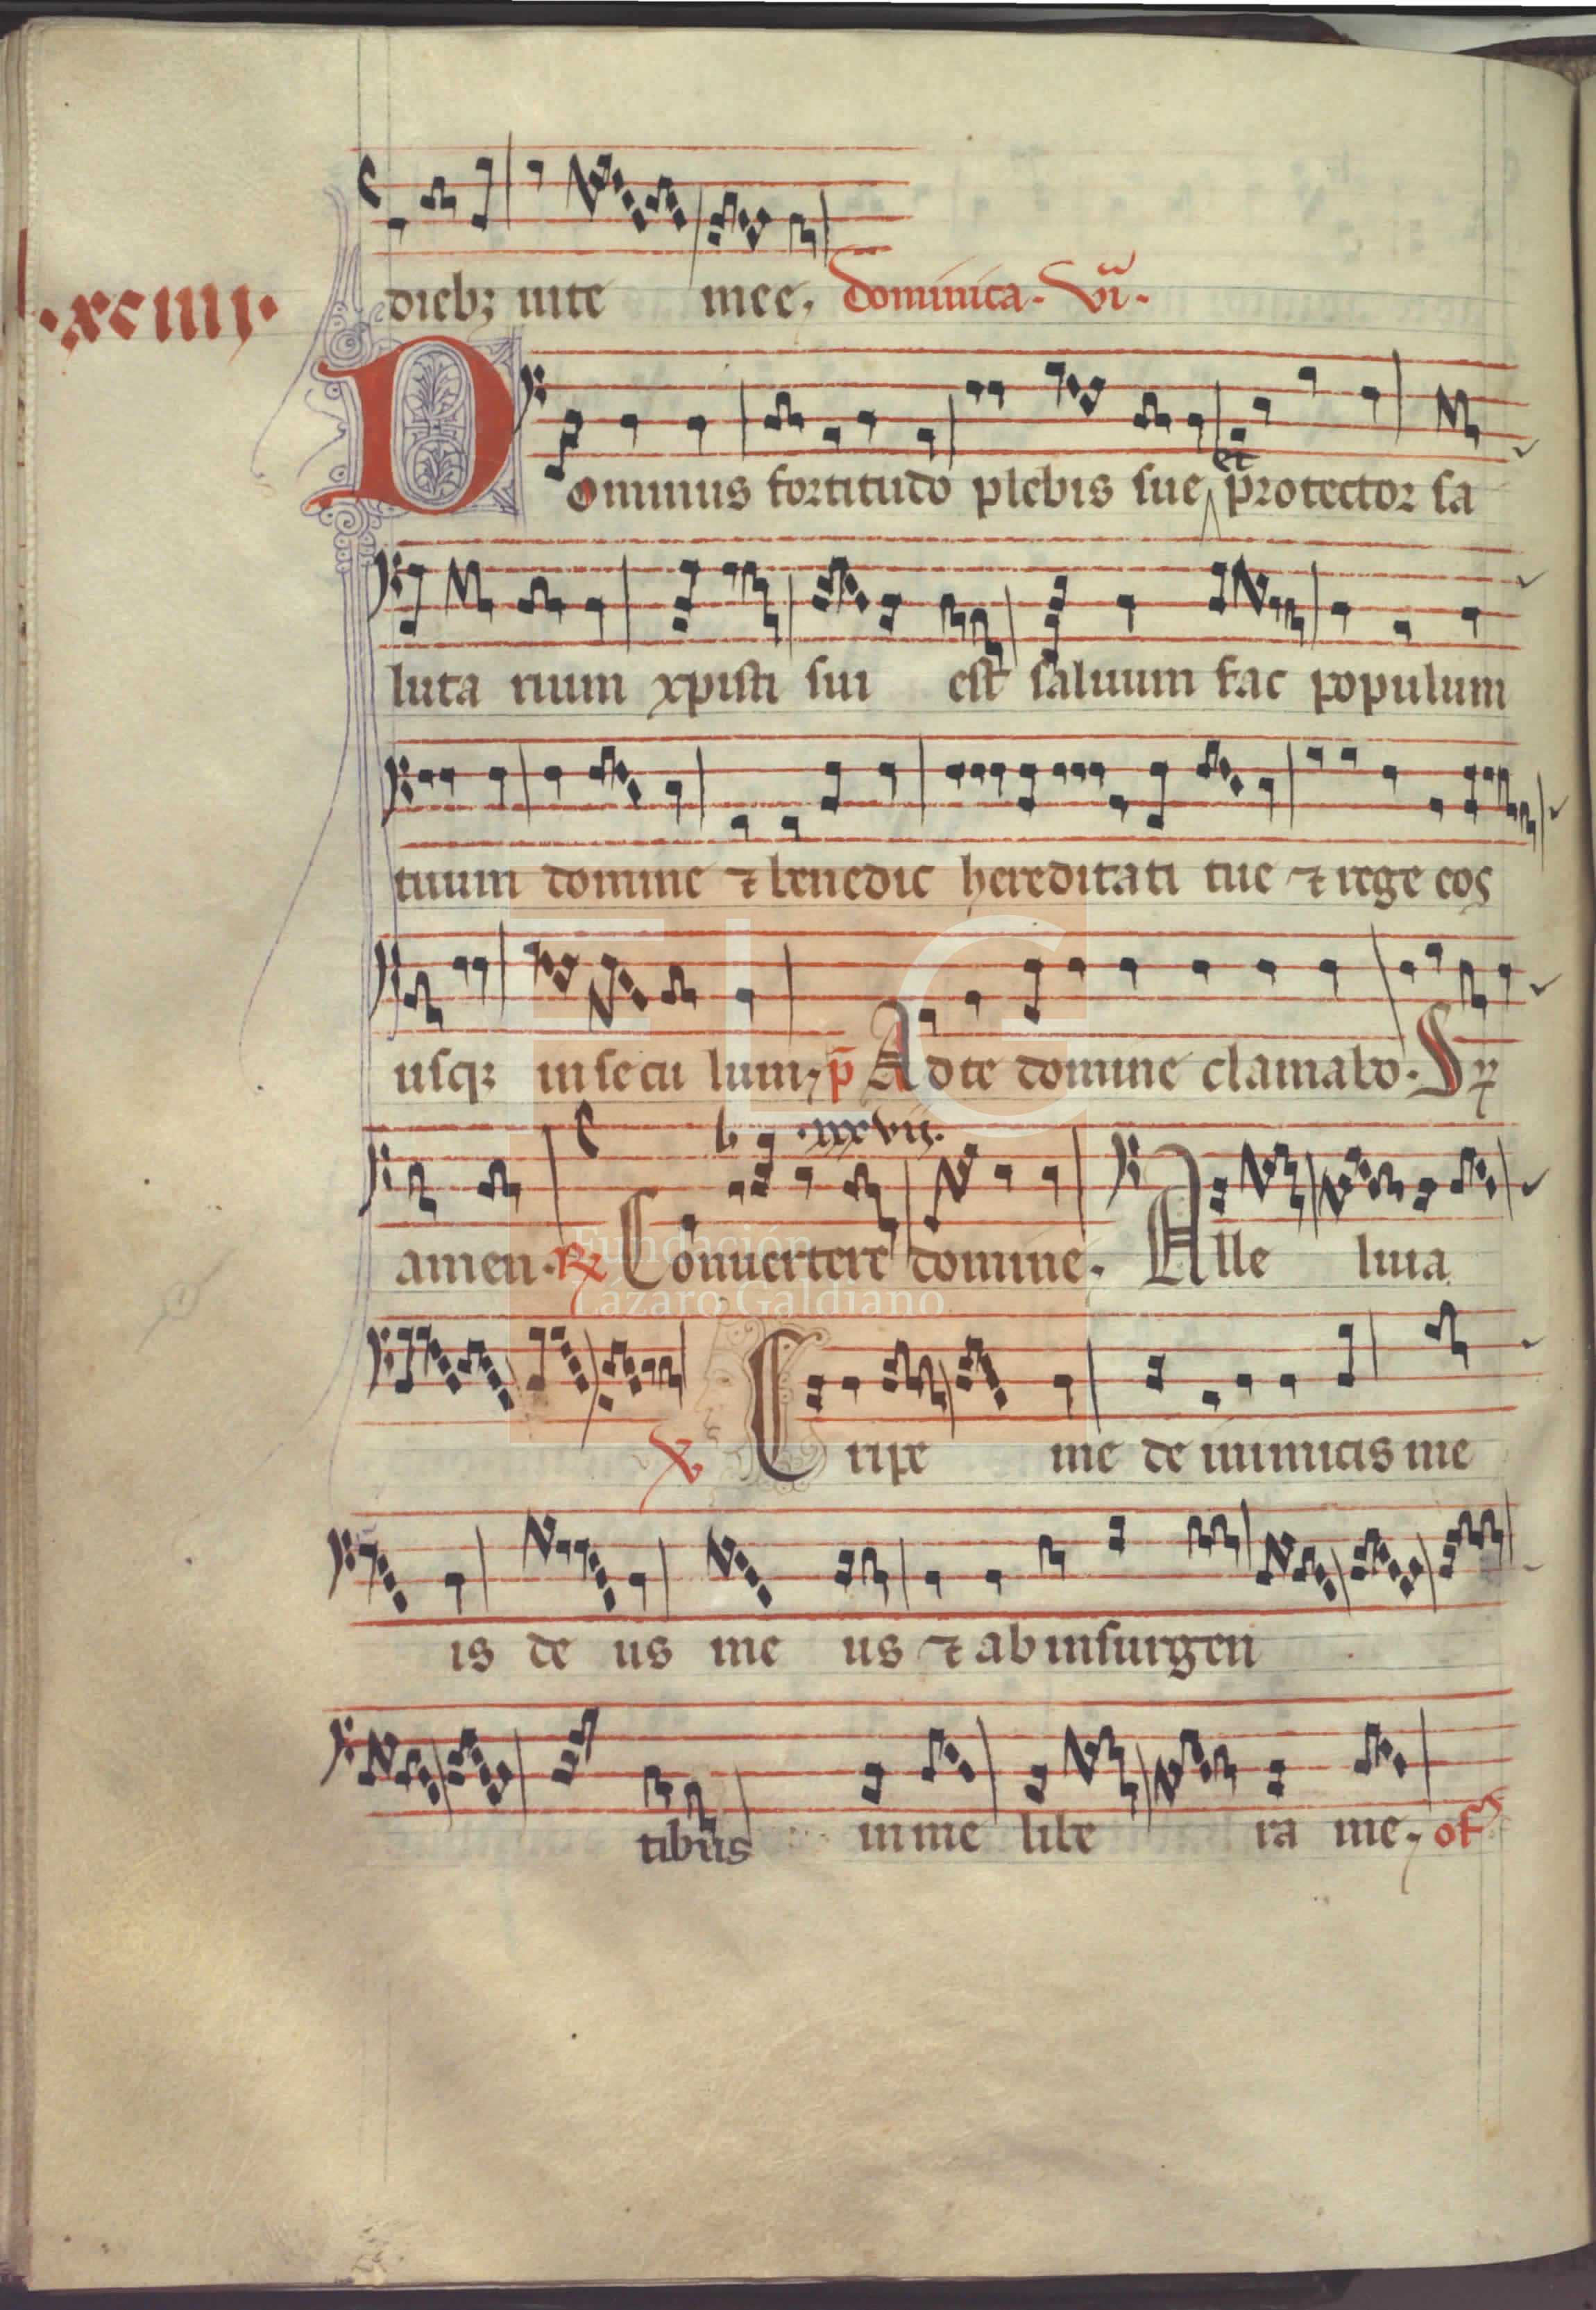 ·xciiii·
dieb; uite mee. dominica. vi.
et
Dominus fortitudo plebis sue protector sa
luta rium xpisti sui est saluum fac populum
tuum domine ⁊ benedic hereditati tue ⁊ rege eos
usq; in secu lum. p̄ Ad te domine clamabo. S
·xxxvii·
amen. ℞ Conuertere domine. Alle luia
℣ Eripe me de inimicis me
is de us me us ⁊ ab insurgen
tibus in me libe ra me. of
FLG
Fundación
Lázaro Galdiano